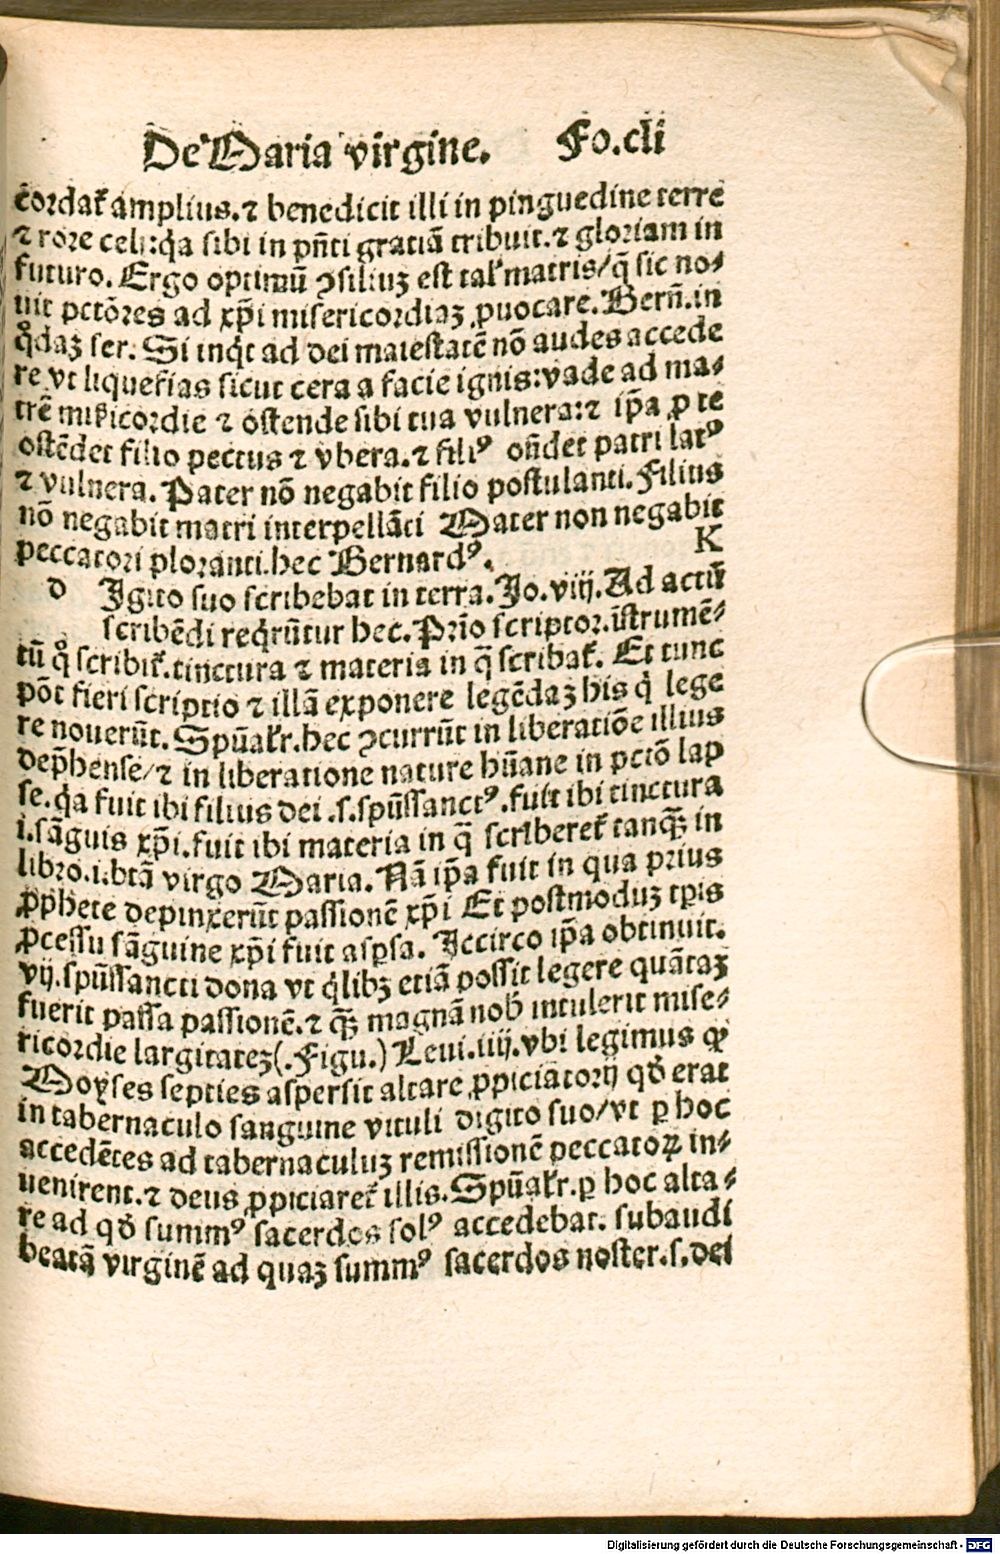 De Maria virgine. Fo.cli
cōrdaꝉ amplius.⁊ benedicit illi in pinguedine terre
⁊ rore celi:q̇a sibi in pn̄ti gratiā tribuit.⁊ gloriam in
futuro. Ergo optimū ↄsiliuꝫ est talꝭ matris/q̄ sic no⸗
uit pctōres ad xp̄i misericordiaꝫ ꝓuocare. Bern̄.in
q̊daꝫ ser. Si inq̇t ad dei maiestatē nō audes accede
re vt liquefias sicut cera a facie ignis:vade ad ma⸗
trē mīcordie ⁊ ostende sibi tua vulnera:⁊ ip̄a ꝓ te
ostēdet filio pectus ⁊ vbera.⁊ filiꝰ on̄det patri latꝰ
⁊ vulnera. Pater nō negabit filio postulanti. Filius
nō negabit matri interpellāti Mater non negabit
peccatori ploranti.hec Bernardꝰ. K
D Igito suo scribebat in terra. Jo.viij. Ad actū
scribēdi req̇rūtur hec. Prīo scriptor.īstrumē⸗
tū q̊ scribit̄.tinctura ⁊ materia in q̄ scribat̄. Et tunc
pōt fieri scriptio ⁊ illā exponere legēdaꝫ his q̇ lege
re nouerūt. Spūalr̄.hec ↄcurrūt in liberatiōe illius
dep̄hense/⁊ in liberatione nature hūane in pctō lap
se.q̇a fuit ibi filius dei .s.spūssanctꝰ.fuit ibi tinctura
i.sāguis xp̄i.fuit ibi materia in q̄ scriberet̄ tanqꝫ̄ in
libro.i.btā virgo Maria. Nā ip̄a fuit in qua prius
ꝓphete depinxerūt passionē xp̄i Et postmoduꝫ tp̄is
ꝓcessu sāguine xp̄i fuit asꝑsa. Iccirco ip̄a obtinuit.
vij.spūssancti dona vt q̇libꝫ etiā possit legere quātaꝫ
fuerit passa passionē.⁊ qꝫ̄ magnā nob̄ intulerit mise⸗
ricordie largitateꝫ(.Figu.) Leui.iiij.vbi legimus ꝙ
Moyses septies aspersit altare ꝓpiciatorij qd̄ erat
in tabernaculo sanguine vituli digito suo/vt ꝑ hoc
accedētes ad tabernaculuꝫ remissionē peccatoꝝ in⸗
uenirent.⁊ deus ꝓpiciaret̄ illis. Spūalr̄.ꝑ hoc alta⸗
re ad qd̄ summꝰ sacerdos solꝰ accedebat. subaudi
beatā virginē ad quaꝫ summꝰ sacerdos noster.s.dei
Digitalisierung gefördert durch die Deutsche Forschungsgemeinschaft - DFG